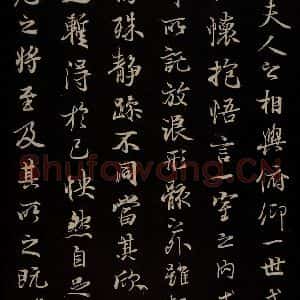 夫人之相與俯仰一世
懷抱悟言一室之内
所託放浪形骸之外雖
殊静躁不同當其欣
暫得於己怏然自足
之將至及其所之既
Shufawang.CN